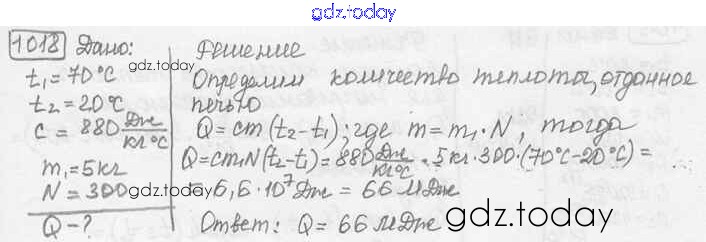 gdz.today
1018 Дано:
t₁=70°C
t₂=20°C
c=880 Дж/кг°C
m₁=5кг
N=300
Q-?
gdz.today
gdz.today
Решение
Определим количество теплоты, отданное
печью
Q=cm(t₂-t₁); где m=m₁·N, тогда
Q=cm₁N(t₂-t₁)=880 Дж/кг°C·5кг·300·(70°C-20°C)=
=6,6·10⁷Дж=66МДж
Ответ: Q=66МДж
gdz.today